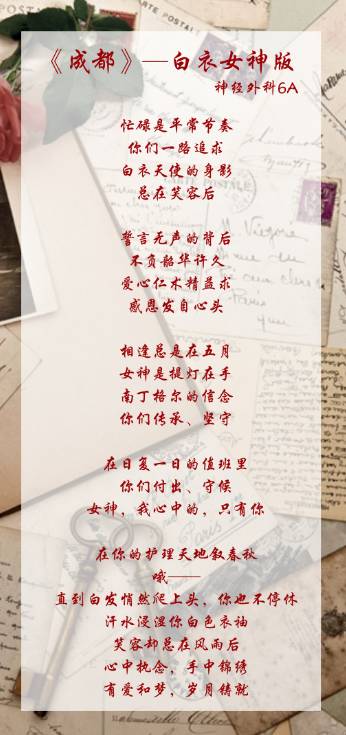 《成都》—白衣女神版
神经外科6A
忙碌是平常节奏
你们一路追求
白衣天使的身影
总在笑容后
誓言无声的背后
不负韶华许久
爱心仁术精益求
感恩发自心头
相逢总是在五月
女神是提灯在手
南丁格尔的信念
你们传承、坚守
在日复一日的值班里
你们付出、守候
女神，我心中的，只有你
在你的护理天地叙春秋
哦——
直到白发悄然爬上头，你也不停休
汗水浸湿你白色衣袖
笑容却总在风雨后
心中执念，手中锦绣
有爱和梦，岁月铸就